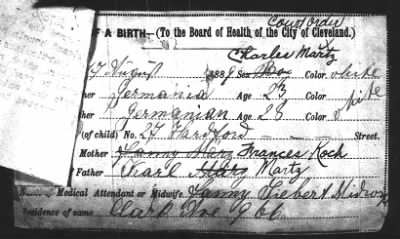 Court Order
F A BIRTH—(To the Board of Health of the City of Cleveland.)
Charles Martz
August 1889 Sex Boy Color white
ther Germania Age 23 Color white
ther Germanian Age 28
(of child) No. 27 Street.
Mother Fanny Frances Koch
Father Charl Martz
Name of Medical Attendant or Midwife Fanny Siebert Midwife
Residence of same Clark Ave